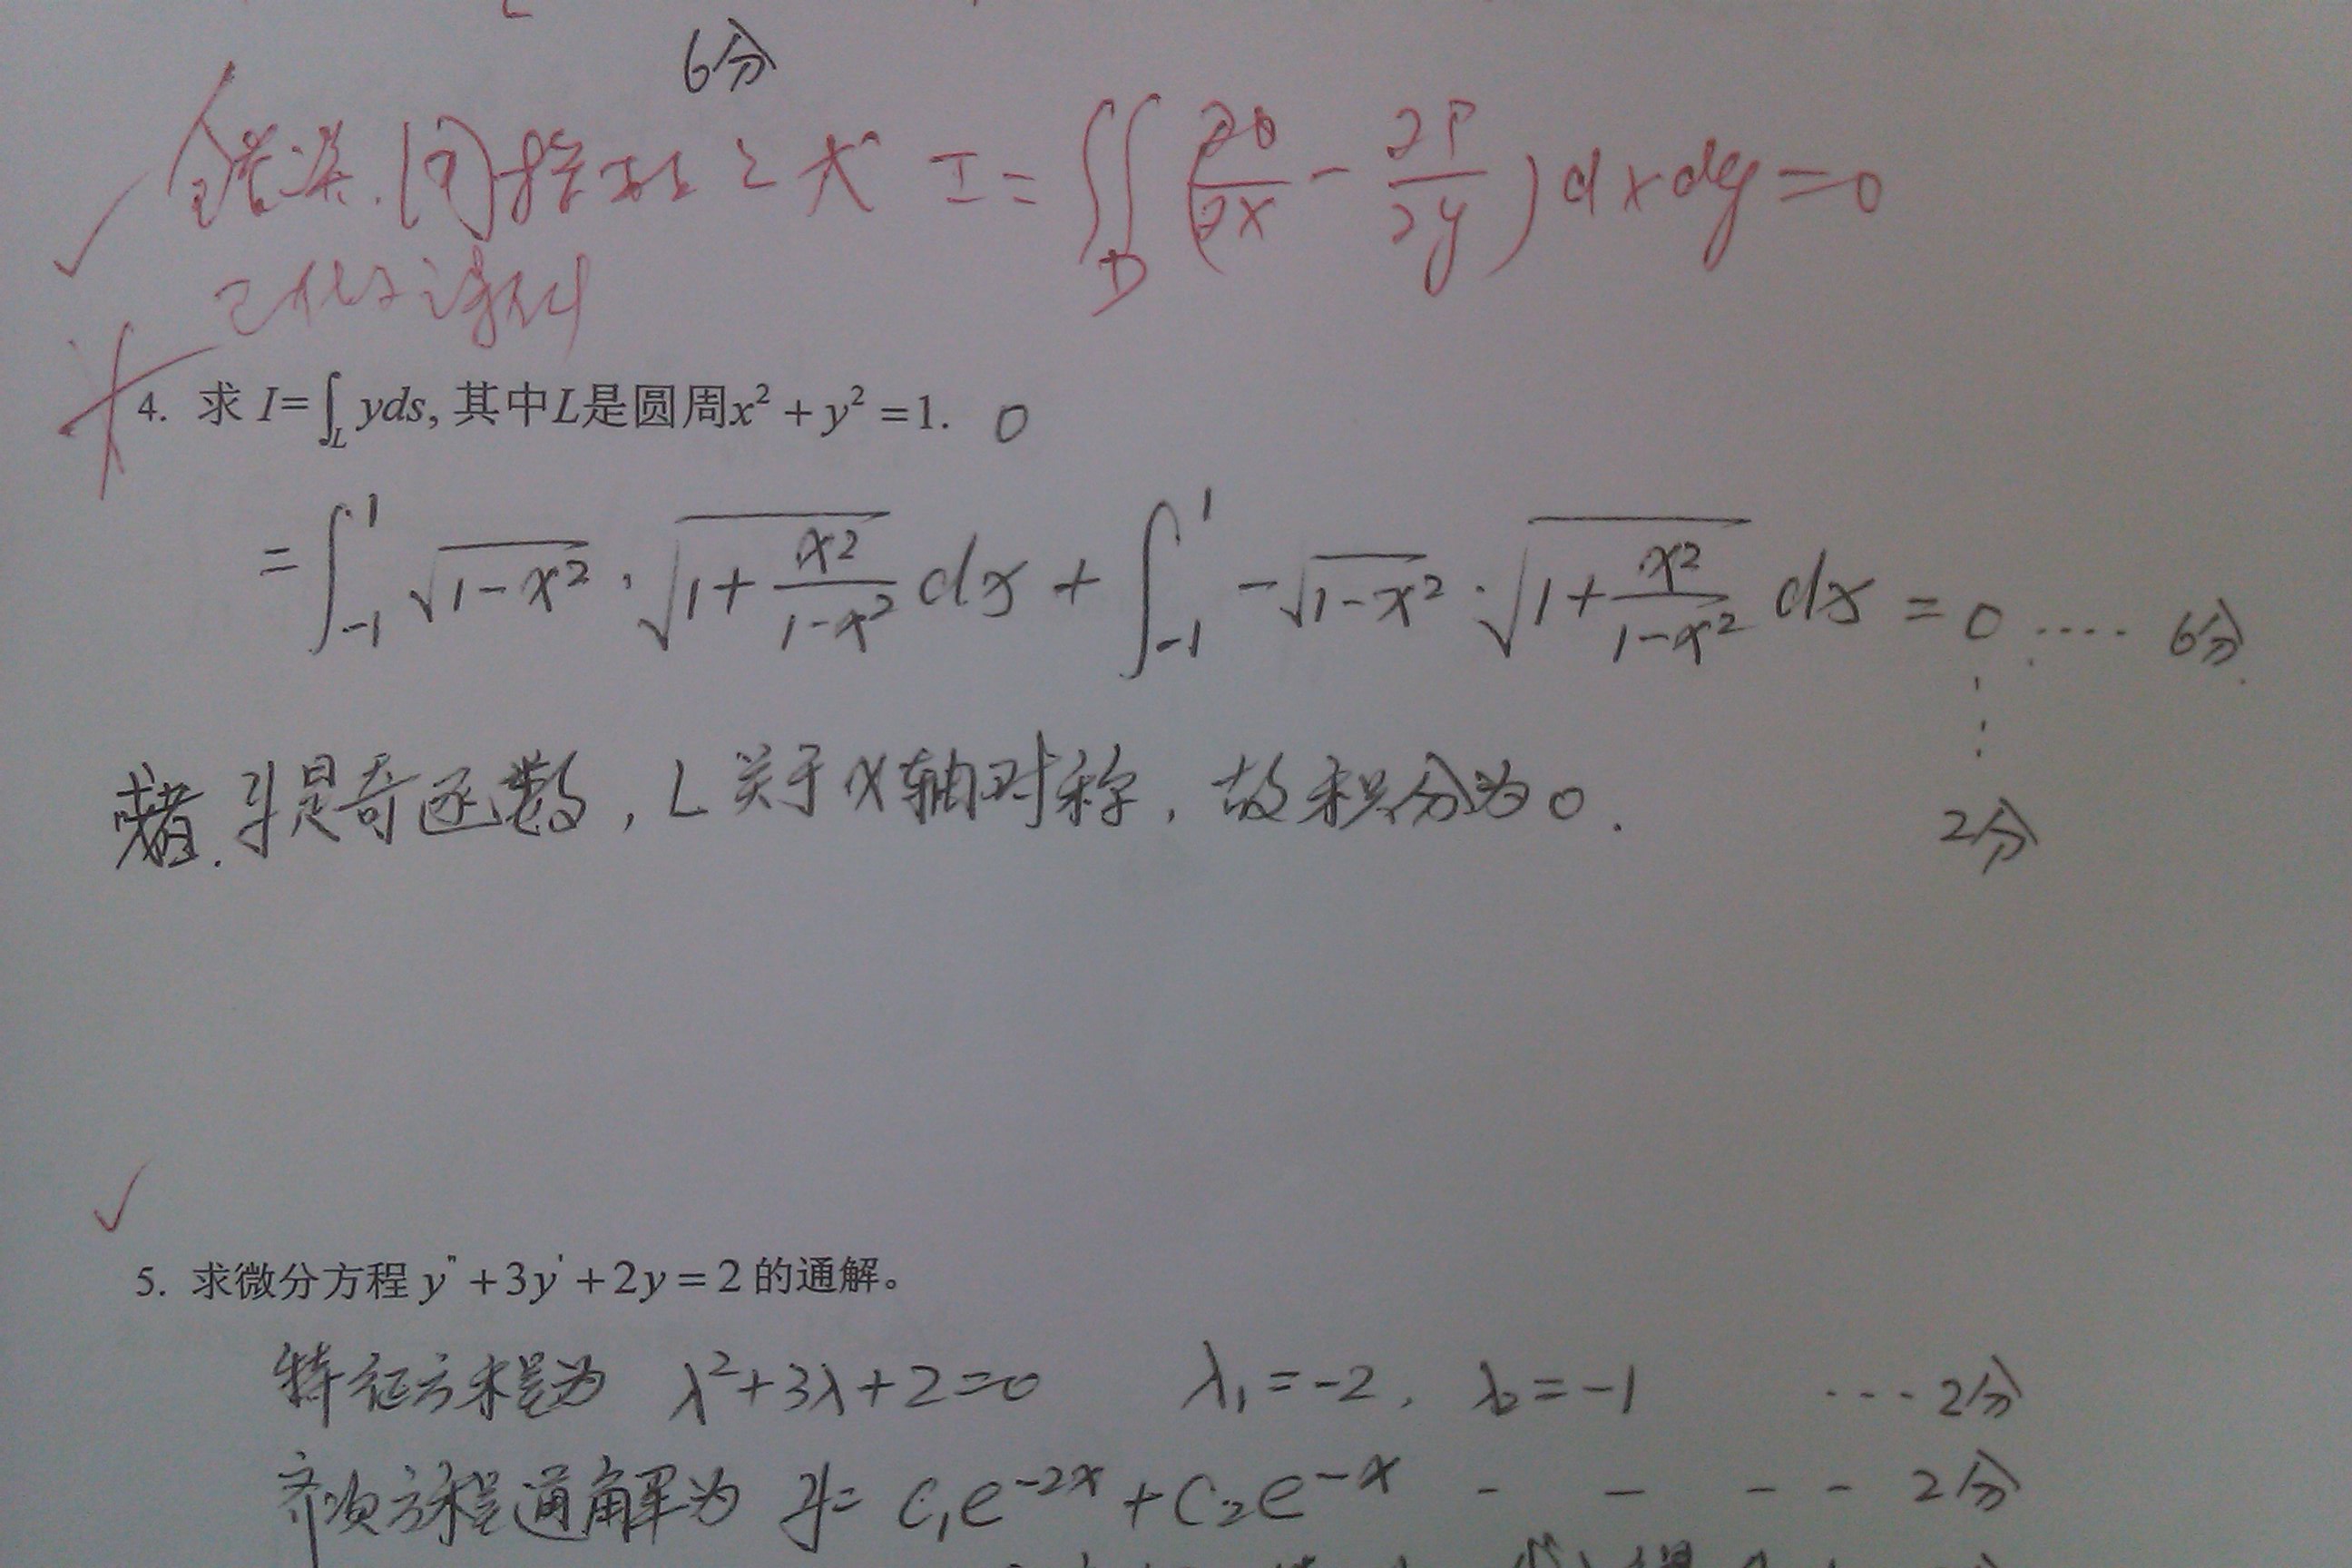 6分
错误.用格林公式 I=∬_D(∂Q/∂x - ∂P/∂y)dxdy=0
4. 求 I=∫_L yds, 其中L是圆周x²+y²=1. 0
=∫_{-1}^{1} √(1-x²)·√(1+x²/(1-x²)) dx + ∫_{-1}^{1} -√(1-x²)·√(1+x²/(1-x²)) dx = 0 .... 6分
或者. y是奇函数, L关于x轴对称, 故积分为0. 2分
5. 求微分方程 y''+3y'+2y=2 的通解。
特征方程为 λ²+3λ+2=0 λ₁=-2, λ₂=-1 ...2分
齐次方程通解为 y= C₁e^{-2x}+C₂e^{-x} - - - - 2分